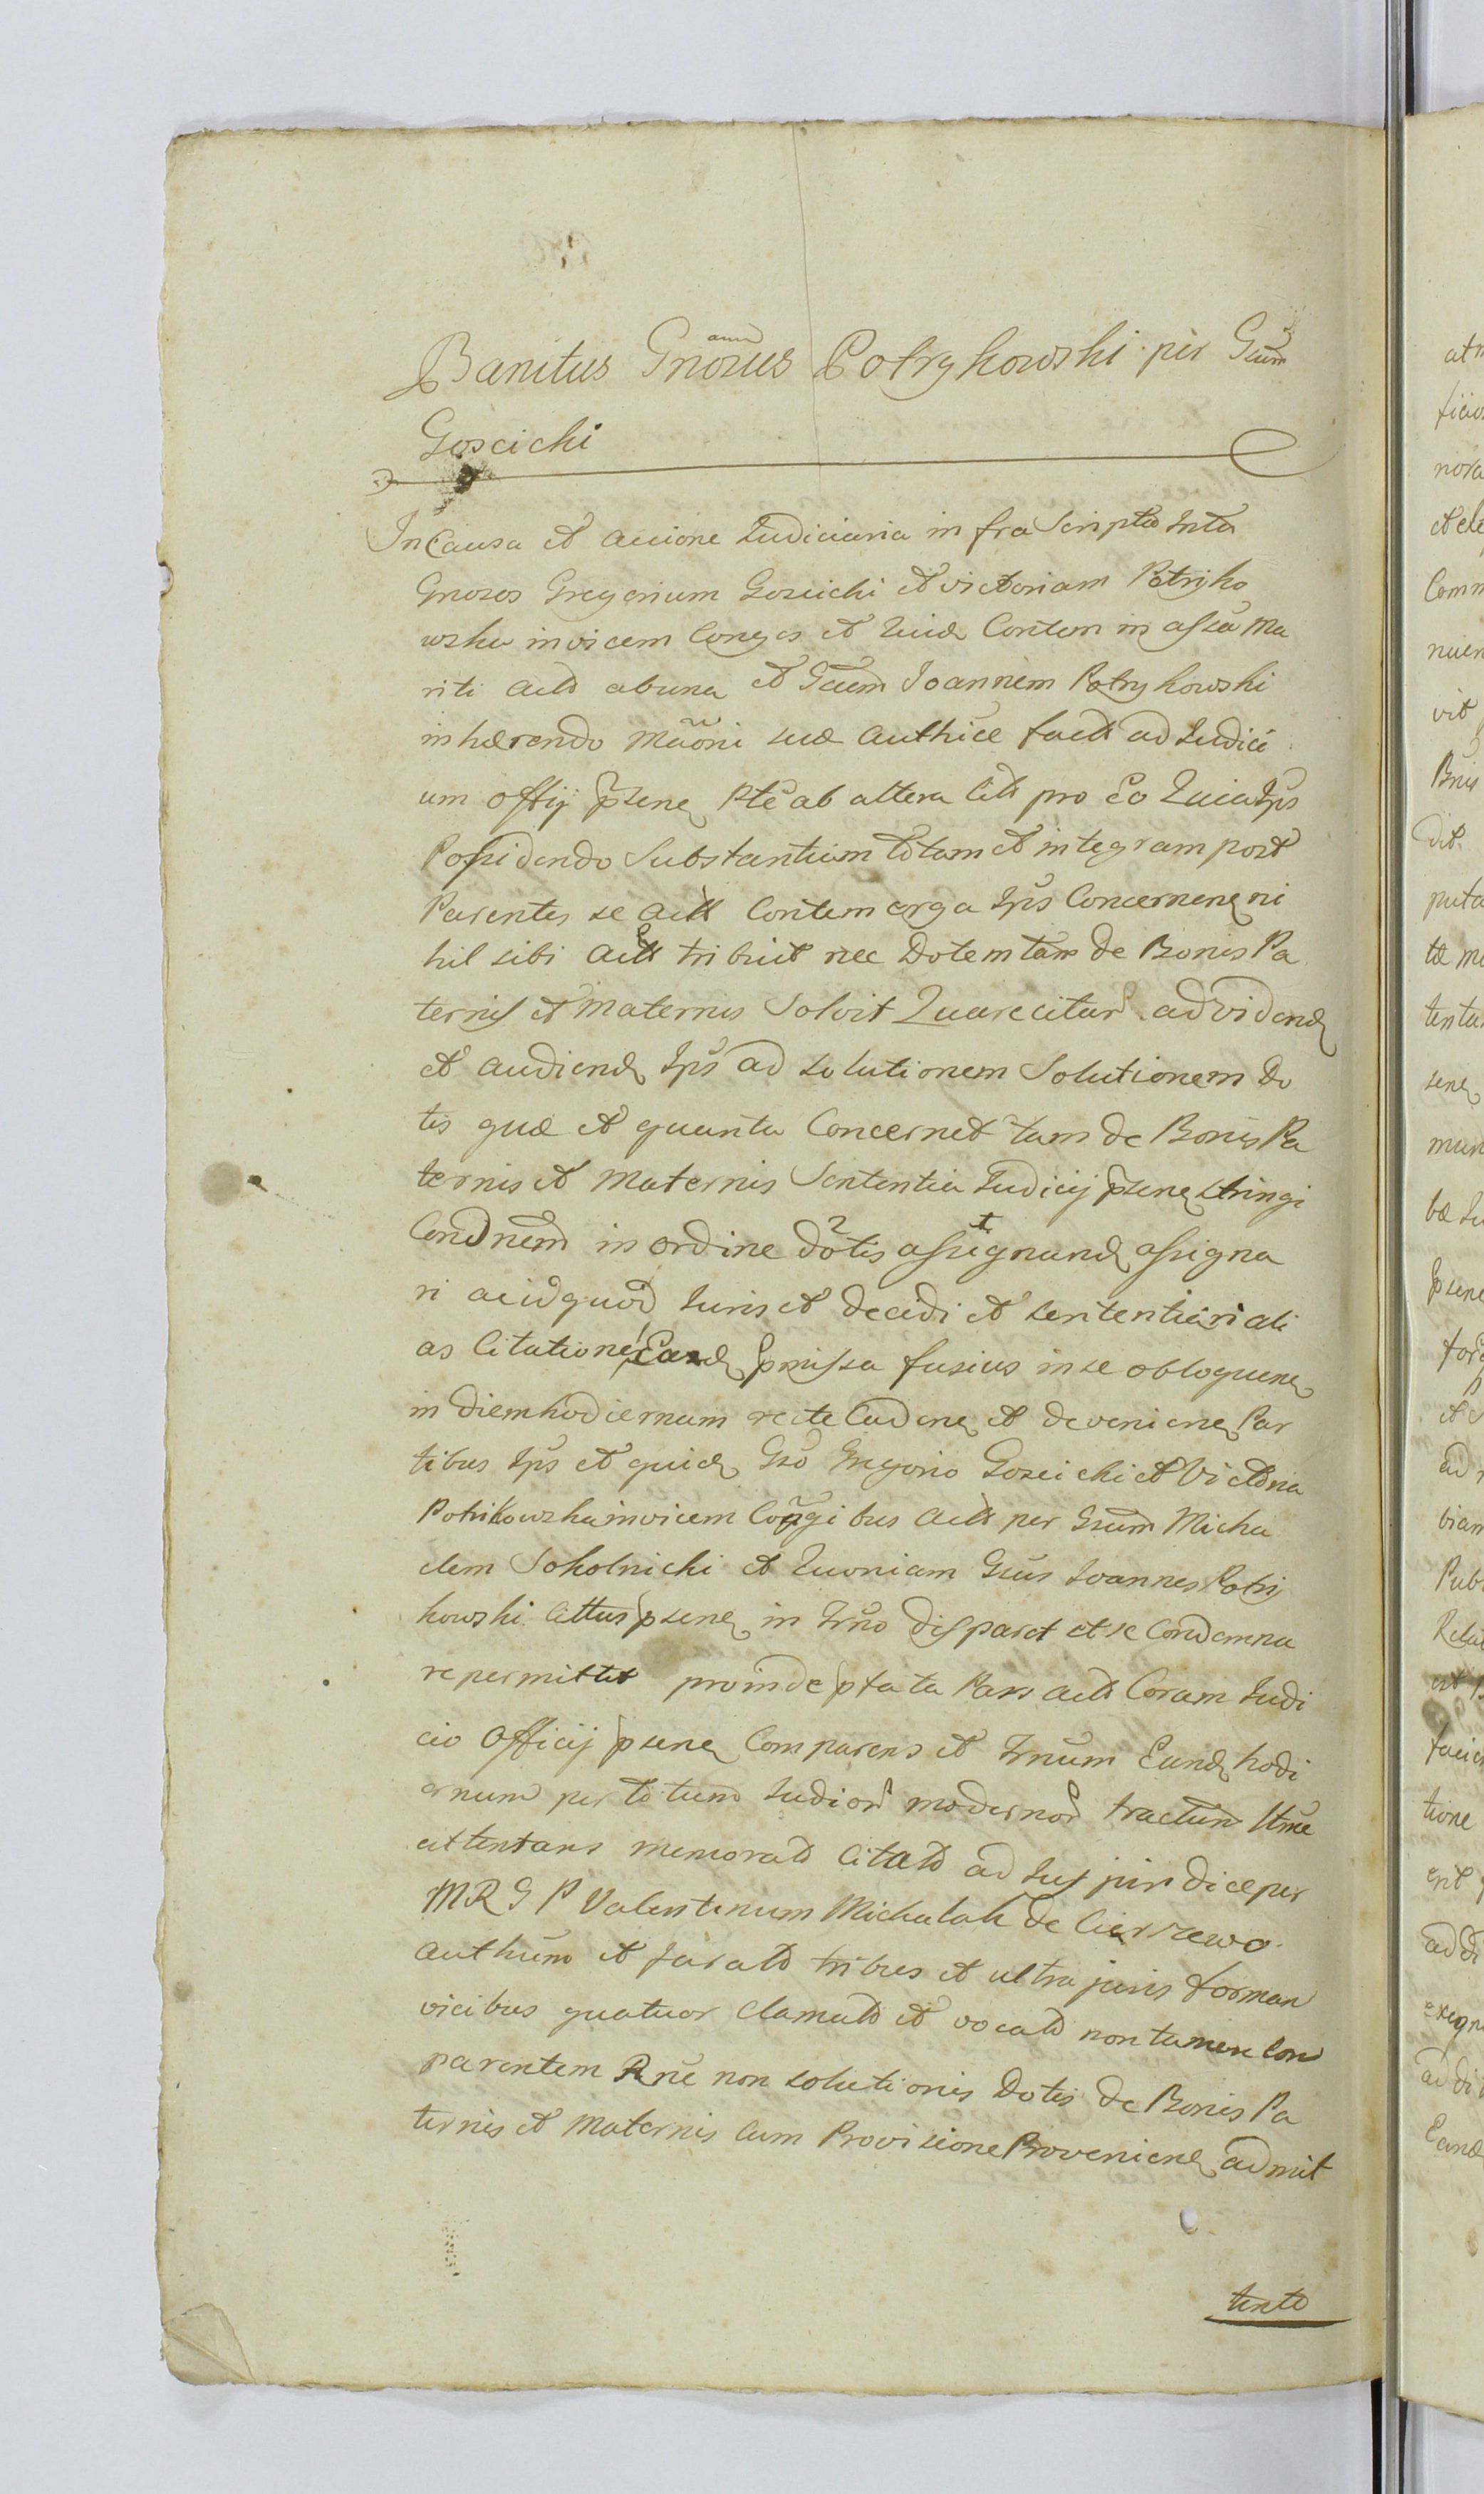 Banitus Gnosus Potrykowski per Gsum
Goscicki
In Causa et accione Iudiciaria infra Scripta Inter
Gnosos Gregorium Goscicki et victoriam Potryko
wska invicem Conges et Quidē Contem in assa Ma
riti Acto ab una et Gsum Ioannem Potrykowski
inhærendo Maoni suæ Authicæ fact ad Iudici
um Offij psene Pte ab altera Cit pro Eo Quia Ips
Possidendo Substantiam totam et integram post
Parentes se Act Contem erga Ips Concernene ni
hil sibi Act tribuit nec Dotem tam de Bonis Pa
ternis et Maternis Solvit Quare citar ad vidend
et audiend Ips ad solutionem Solutionem Do
tis quæ et quanta Concernet tam de Bonis Pa
ternis et Maternis Sententia Iudicij psene stringi
Condnem in ordine dotis assignand assigna
ri ac id quod Iuris et decidi et sententiari ali
as Citatione Eand pmissa fusius in se obloquene
in diem hodiernum recte Cadene et deveniene Par
tibus Ips et quidē Gso Gregorio Goscicki et Victoria
Potrikowska invicem Congibus Act per Gsum Micha
elem Sokolnicki et Quoniam Gsus Ioannes Potry
kowski Cittus psene in Trno disparet et se Condemna
re permittet proinde pfata Pars act Coram Iudi
cio Officij psene Comparens et Trnum Eund hodi
ernum per totum Iudior modernor tractum Itme
attentans memorat Citato ad Ius juri dice per
M R G P Valentinum Michalak de Cierzewo
Authum et Jurato tribus et ultra juris formam
vicibus quatuor Clamato et vocato non tamen Com
parentem Rne non solutionis Dotis de Bonis Pa
ternis et Maternis Cum Provisione Proveniene admit
tento